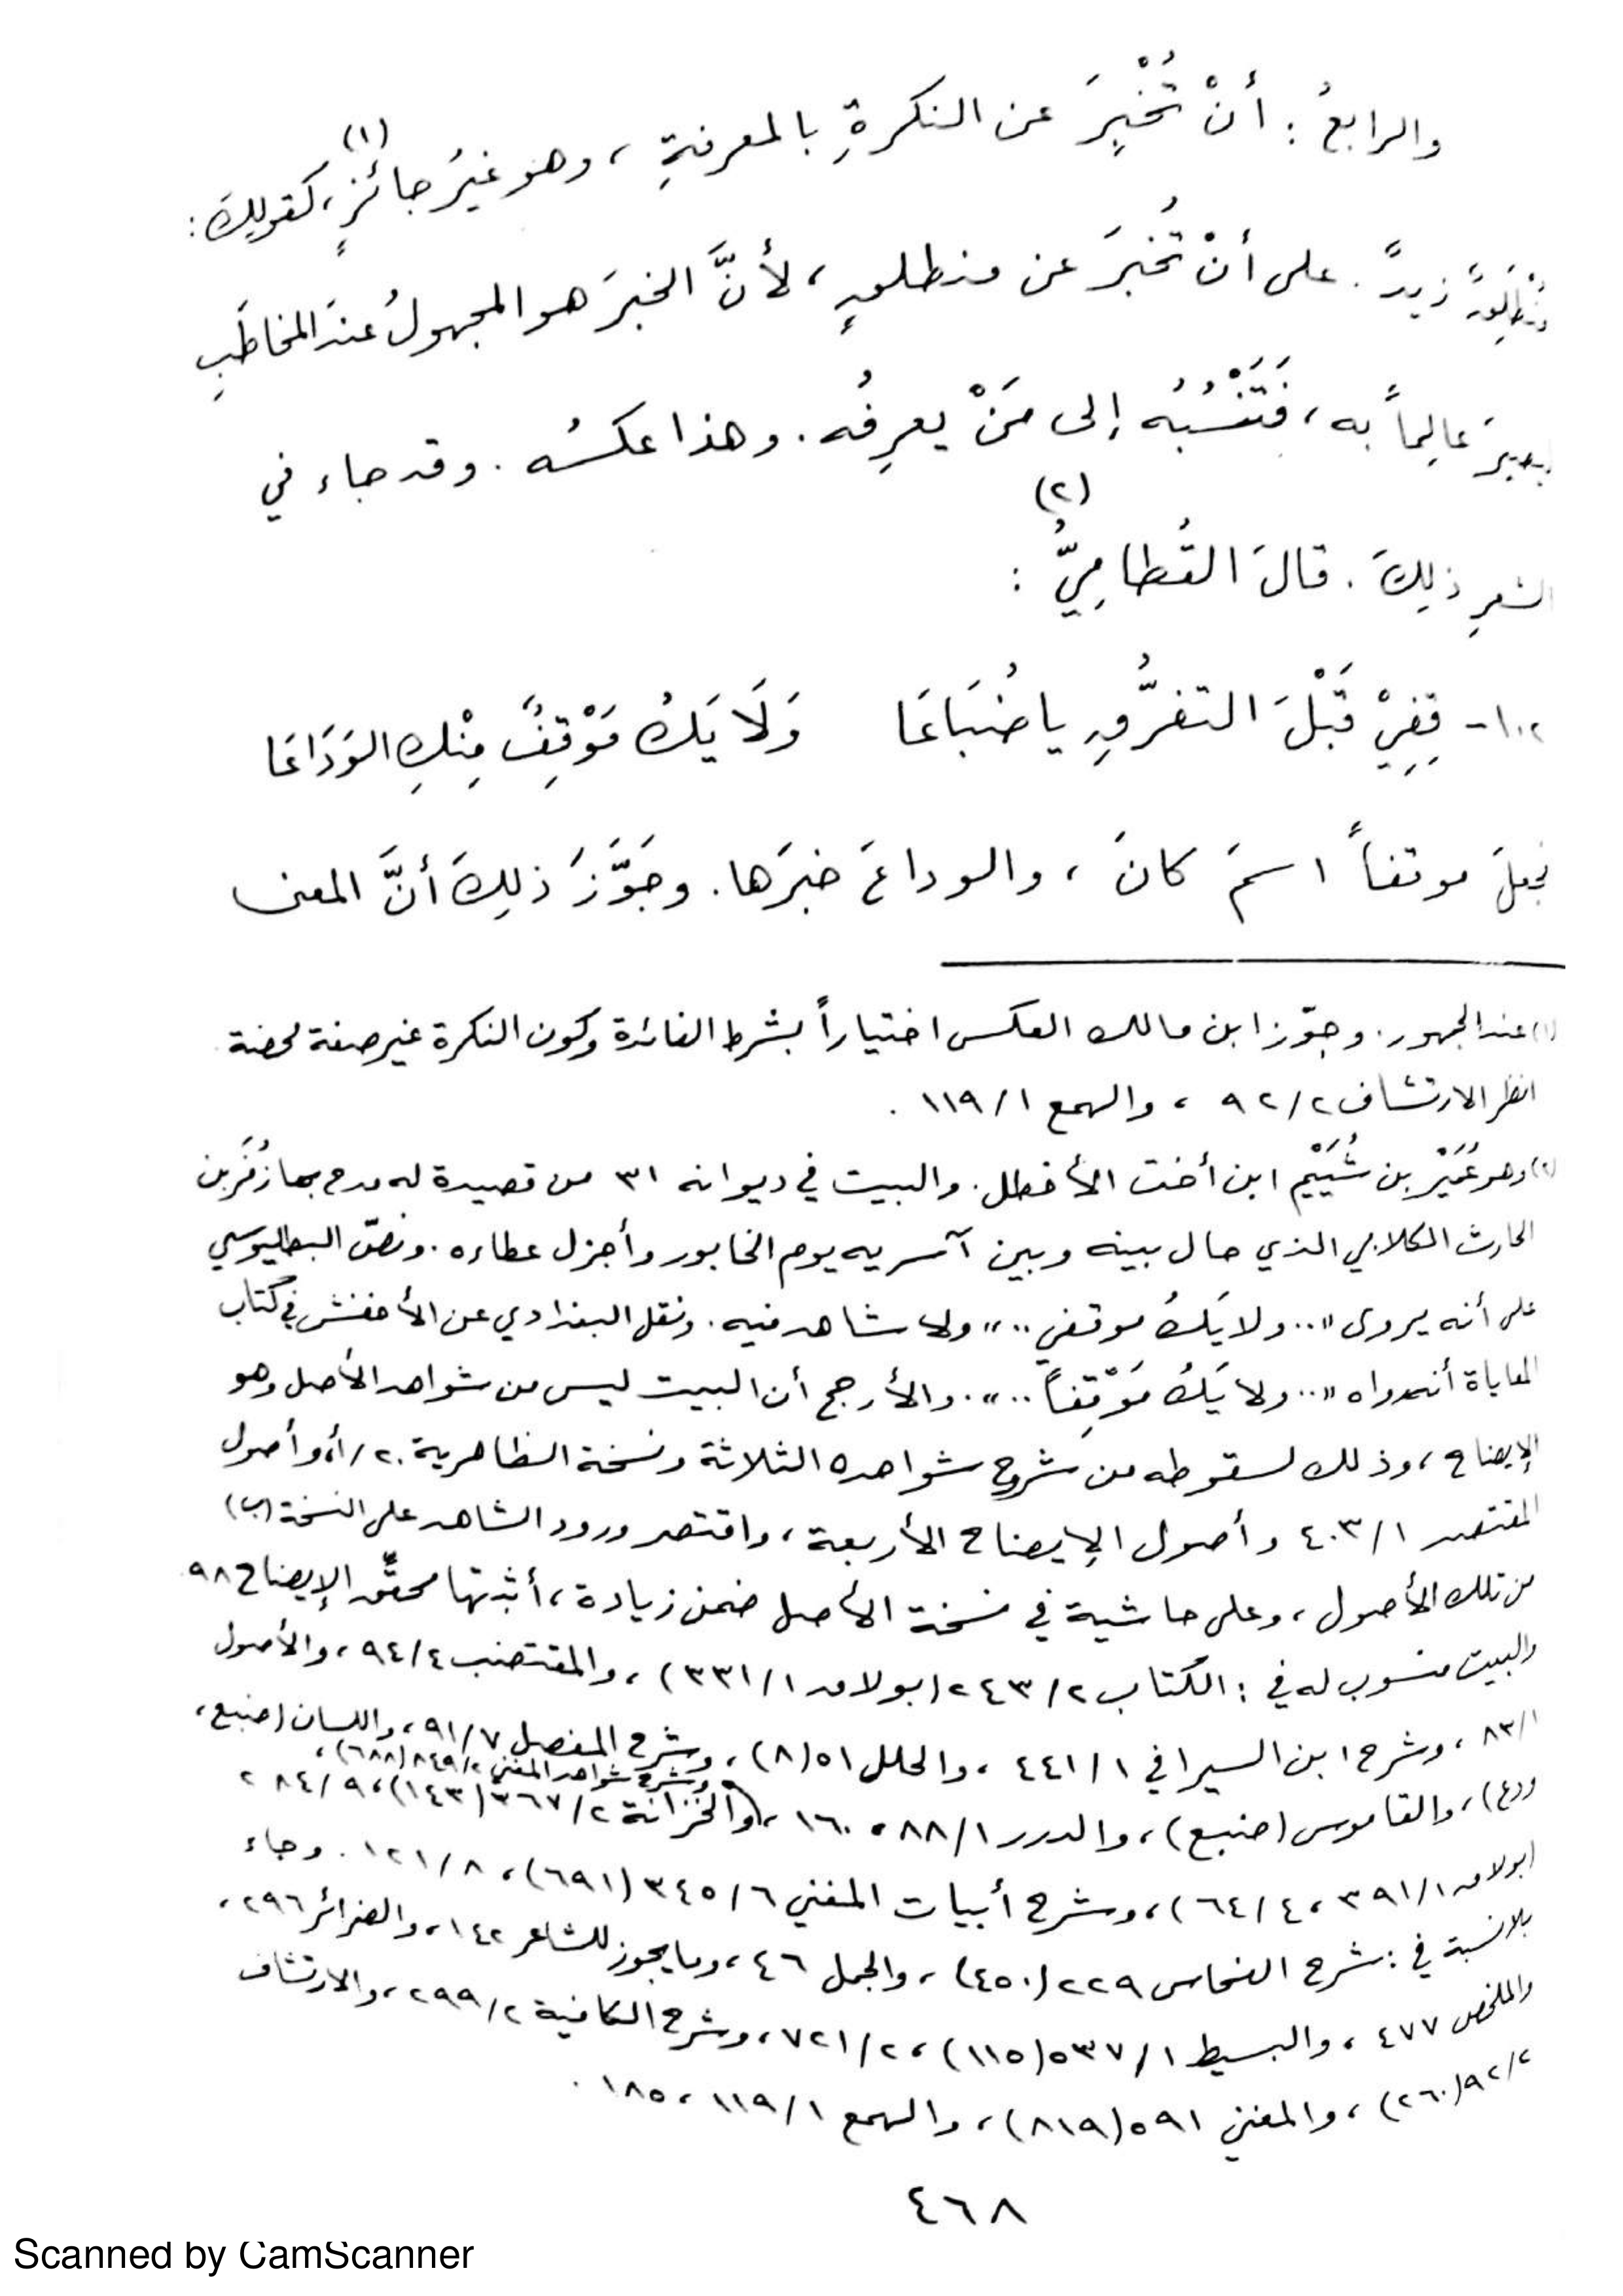 والرابعُ : أنْ تُخْبِرَ عن النكرةِ بالمعرفةِ ، وهو غيرُ جائزٍ(١)، كقولِكَ :
مُنْطَلِقٌ زيدٌ . على أنْ تُخبرَ عن منطلقٍ ، لأنَّ الخبرَ هو المجهولُ عندَ المخاطَبِ
ليصيرَ عالِماً به ، فَتَنْسُبُه إلى مَنْ يعرِفُه . وهذا عكسُه . وقد جاء في
الشعرِ ذلِكَ . قالَ القُطامِيُّ(٢) :
١٠٢- قِفِيْ قَبْلَ التفرُّقِ يا ضُبَاعَا وَلَا يَكُ مَوْقِفٌ مِنْكِ الوَدَاعَا
فجعلَ موقفاً اسمَ كانَ ، والوداعَ خبرَها . وجَوَّزَ ذلِكَ أنَّ المعنى
(١) عند الجمهور . وجوّز ابن مالك العكس اختياراً بشرط الفائدة وكون النكرة غير صفة محضة
انظر الارتشاف ٩٢/٢ ، والهمع ١١٩/١ .
(٢) وهو عُمَيْر بن شُيَيْم ابن أخت الأخطل . والبيت في ديوانه ٣١ من قصيدة له مدح بها زُفَر بن
الحارث الكلابي الذي حال بينه وبين آسريه يوم الخابور وأجزل عطاءه . ونصّ البطليوسي
على أنه يروى «.. ولا يَكُ موقفي ..» ولا شاهد فيه . ونقل البغدادي عن الأخفش في كتاب
المعاياة أنه رواه «.. ولا يَكُ مَوْقِفاً ..» . والأرجح أن البيت ليس من شواهد الأصل وهو
الإيضاح ، وذلك لسقوطه من شروح شواهده الثلاثة ونسخة الظاهرية ٢٠/أ، وأصول
المقتصد ٤٠٣/١ وأصول الإيضاح الأربعة ، واقتصر ورود الشاهد على النسخة (ب)
من تلك الأصول ، وعلى حاشية في نسخة الأصل ضمن زيادة ، أثبتها محقّق الإيضاح ٩٨
والبيت منسوب له في : الكتاب ٢٤٣/٢ (بولاق ٣٣١/١) ، والمقتضب ٩٤/٤ ، والأصول
٨٣/١ ، وشرح ابن السيرافي ٤٤١/١ ، والحلل ٥١ (٨) ، وشرح المفصل ٩١/٧ ، واللسان (ضبع ،
ودع) ، والقاموس (ضبع) ، والدرر ٨٨/١ ، ١٦٠ ، وشرح شواهد المغني ٨٤٩/٢ (٦٨٨) ، والخزانة ٣٦٧/٢ (١٤٣) ، ٢٨٤/٩
(بولاق ٣٩١/١ ، ٦٤/٤) ، وشرح أبيات المغني ٣٤٥/٦ (٦٩١) ، ١٢١/٨ . وجاء
بلا نسبة في : شرح النحاس ٢٢٩ (٤٥٠) ، والجمل ٤٦ ، وما يجوز للشاعر ١٤٢ ، والضرائر ٢٩٦ ،
والملخص ٤٧٧ ، والبسيط ٥٣٧/١ (١١٥) ، ٧٢١/٢ ، وشرح الكافية ٢٩٩/٢ ، والارتشاف
٩٢/٢ (٢٦٠) ، والمغني ٥٩١ (٨١٩) ، والهمع ١١٩/١ ، ١٨٥ .
٤٦٨
Scanned by CamScanner